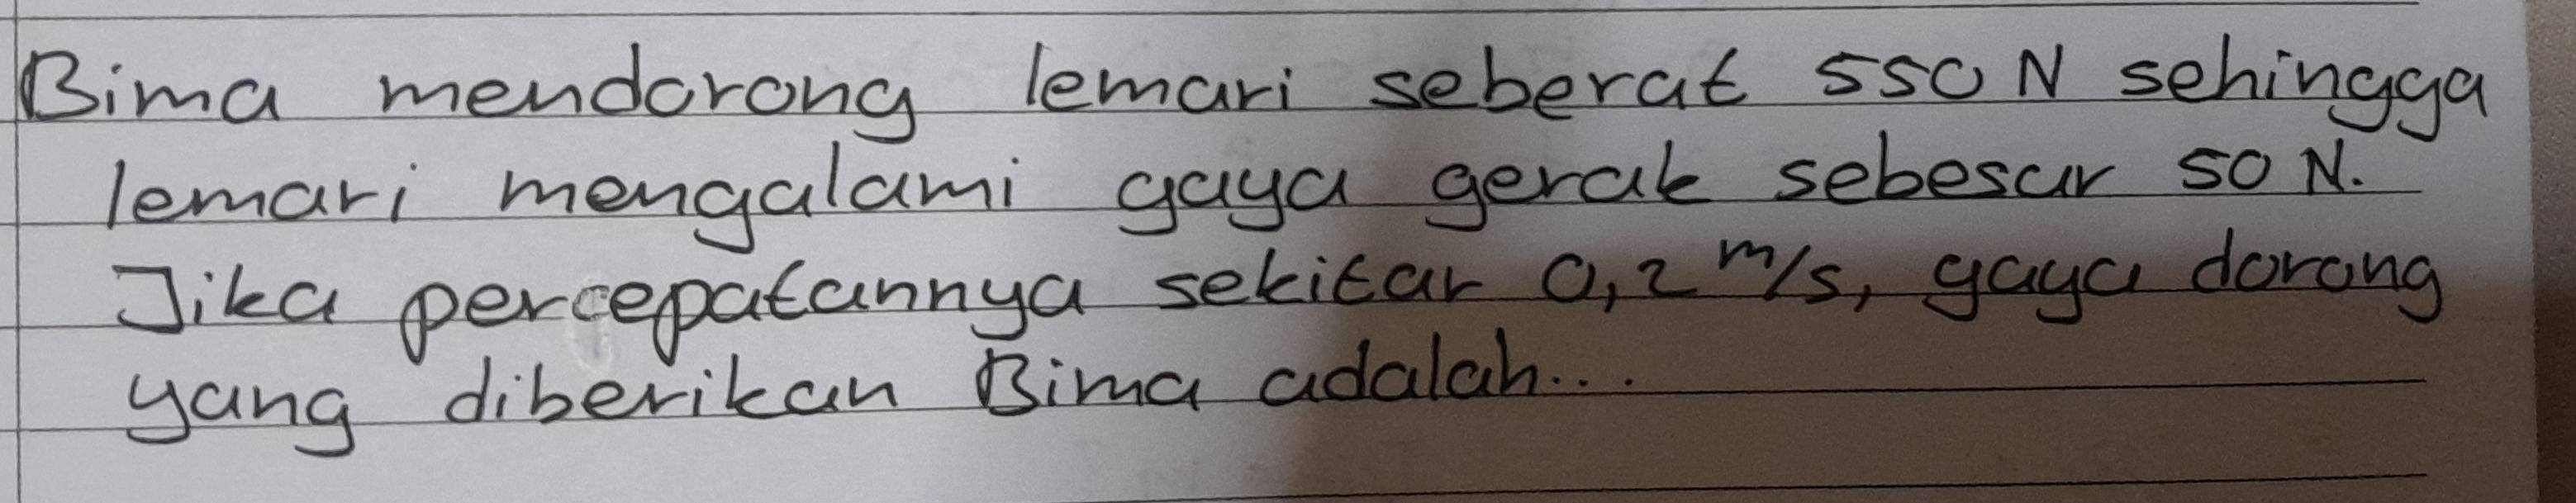 Bima mendorong lemari seberat 550 N sehingga
lemari mengalami gaya gerak sebesar 50 N.
Jika percepatannya sekitar 0,2 m/s, gaya dorong
yang diberikan Bima adalah...